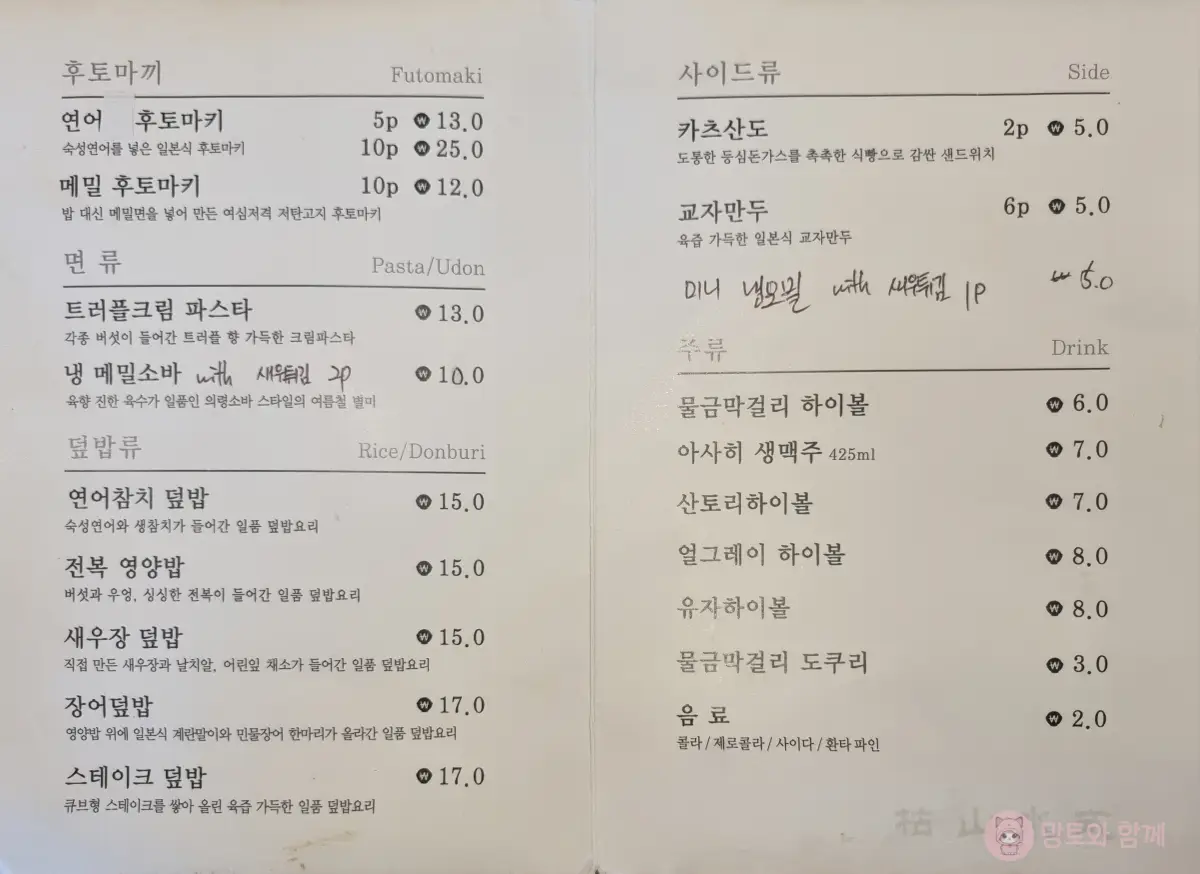 후토마끼 Futomaki
연어 후토마키 5p ₩ 13.0
숙성연어를 넣은 일본식 후토마키 10p ₩ 25.0
메밀 후토마키 10p ₩ 12.0
밥 대신 메밀면을 넣어 만든 여심저격 저탄고지 후토마키
면 류 Pasta/Udon
트러플크림 파스타 ₩ 13.0
각종 버섯이 들어간 트러플 향 가득한 크림파스타
냉 메밀소바 with 새우튀김 2p ₩ 10.0
육향 진한 육수가 일품인 의령소바 스타일의 여름철 별미
덮밥류 Rice/Donburi
연어참치 덮밥 ₩ 15.0
숙성연어와 생참치가 들어간 일품 덮밥요리
전복 영양밥 ₩ 15.0
버섯과 우엉, 싱싱한 전복이 들어간 일품 덮밥요리
새우장 덮밥 ₩ 15.0
직접 만든 새우장과 날치알, 어린잎 채소가 들어간 일품 덮밥요리
장어덮밥 ₩ 17.0
영양밥 위에 일본식 계란말이와 민물장어 한마리가 올라간 일품 덮밥요리
스테이크 덮밥 ₩ 17.0
큐브형 스테이크를 쌓아 올린 육즙 가득한 일품 덮밥요리
사이드류 Side
카츠산도 2p ₩ 5.0
도톰한 등심돈가스를 촉촉한 식빵으로 감싼 샌드위치
교자만두 6p ₩ 5.0
육즙 가득한 일본식 교자만두
미니 냉모밀 with 새우튀김 1P ₩ 5.0
주류 Drink
물금막걸리 하이볼 ₩ 6.0
아사히 생맥주 425ml ₩ 7.0
산토리하이볼 ₩ 7.0
얼그레이 하이볼 ₩ 8.0
유자하이볼 ₩ 8.0
물금막걸리 도쿠리 ₩ 3.0
음 료 ₩ 2.0
콜라/제로콜라/사이다/환타파인
망토와 함께